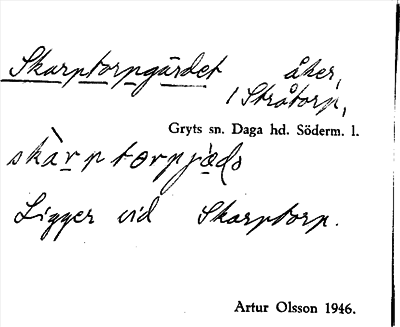 Skarptorpgärdet åker,
/ Stråtorp,
Gryts sn. Daga hd. Söderm. l.
skàrptorpjæds
Ligger vid Skarptorp.
Artur Olsson 1946.